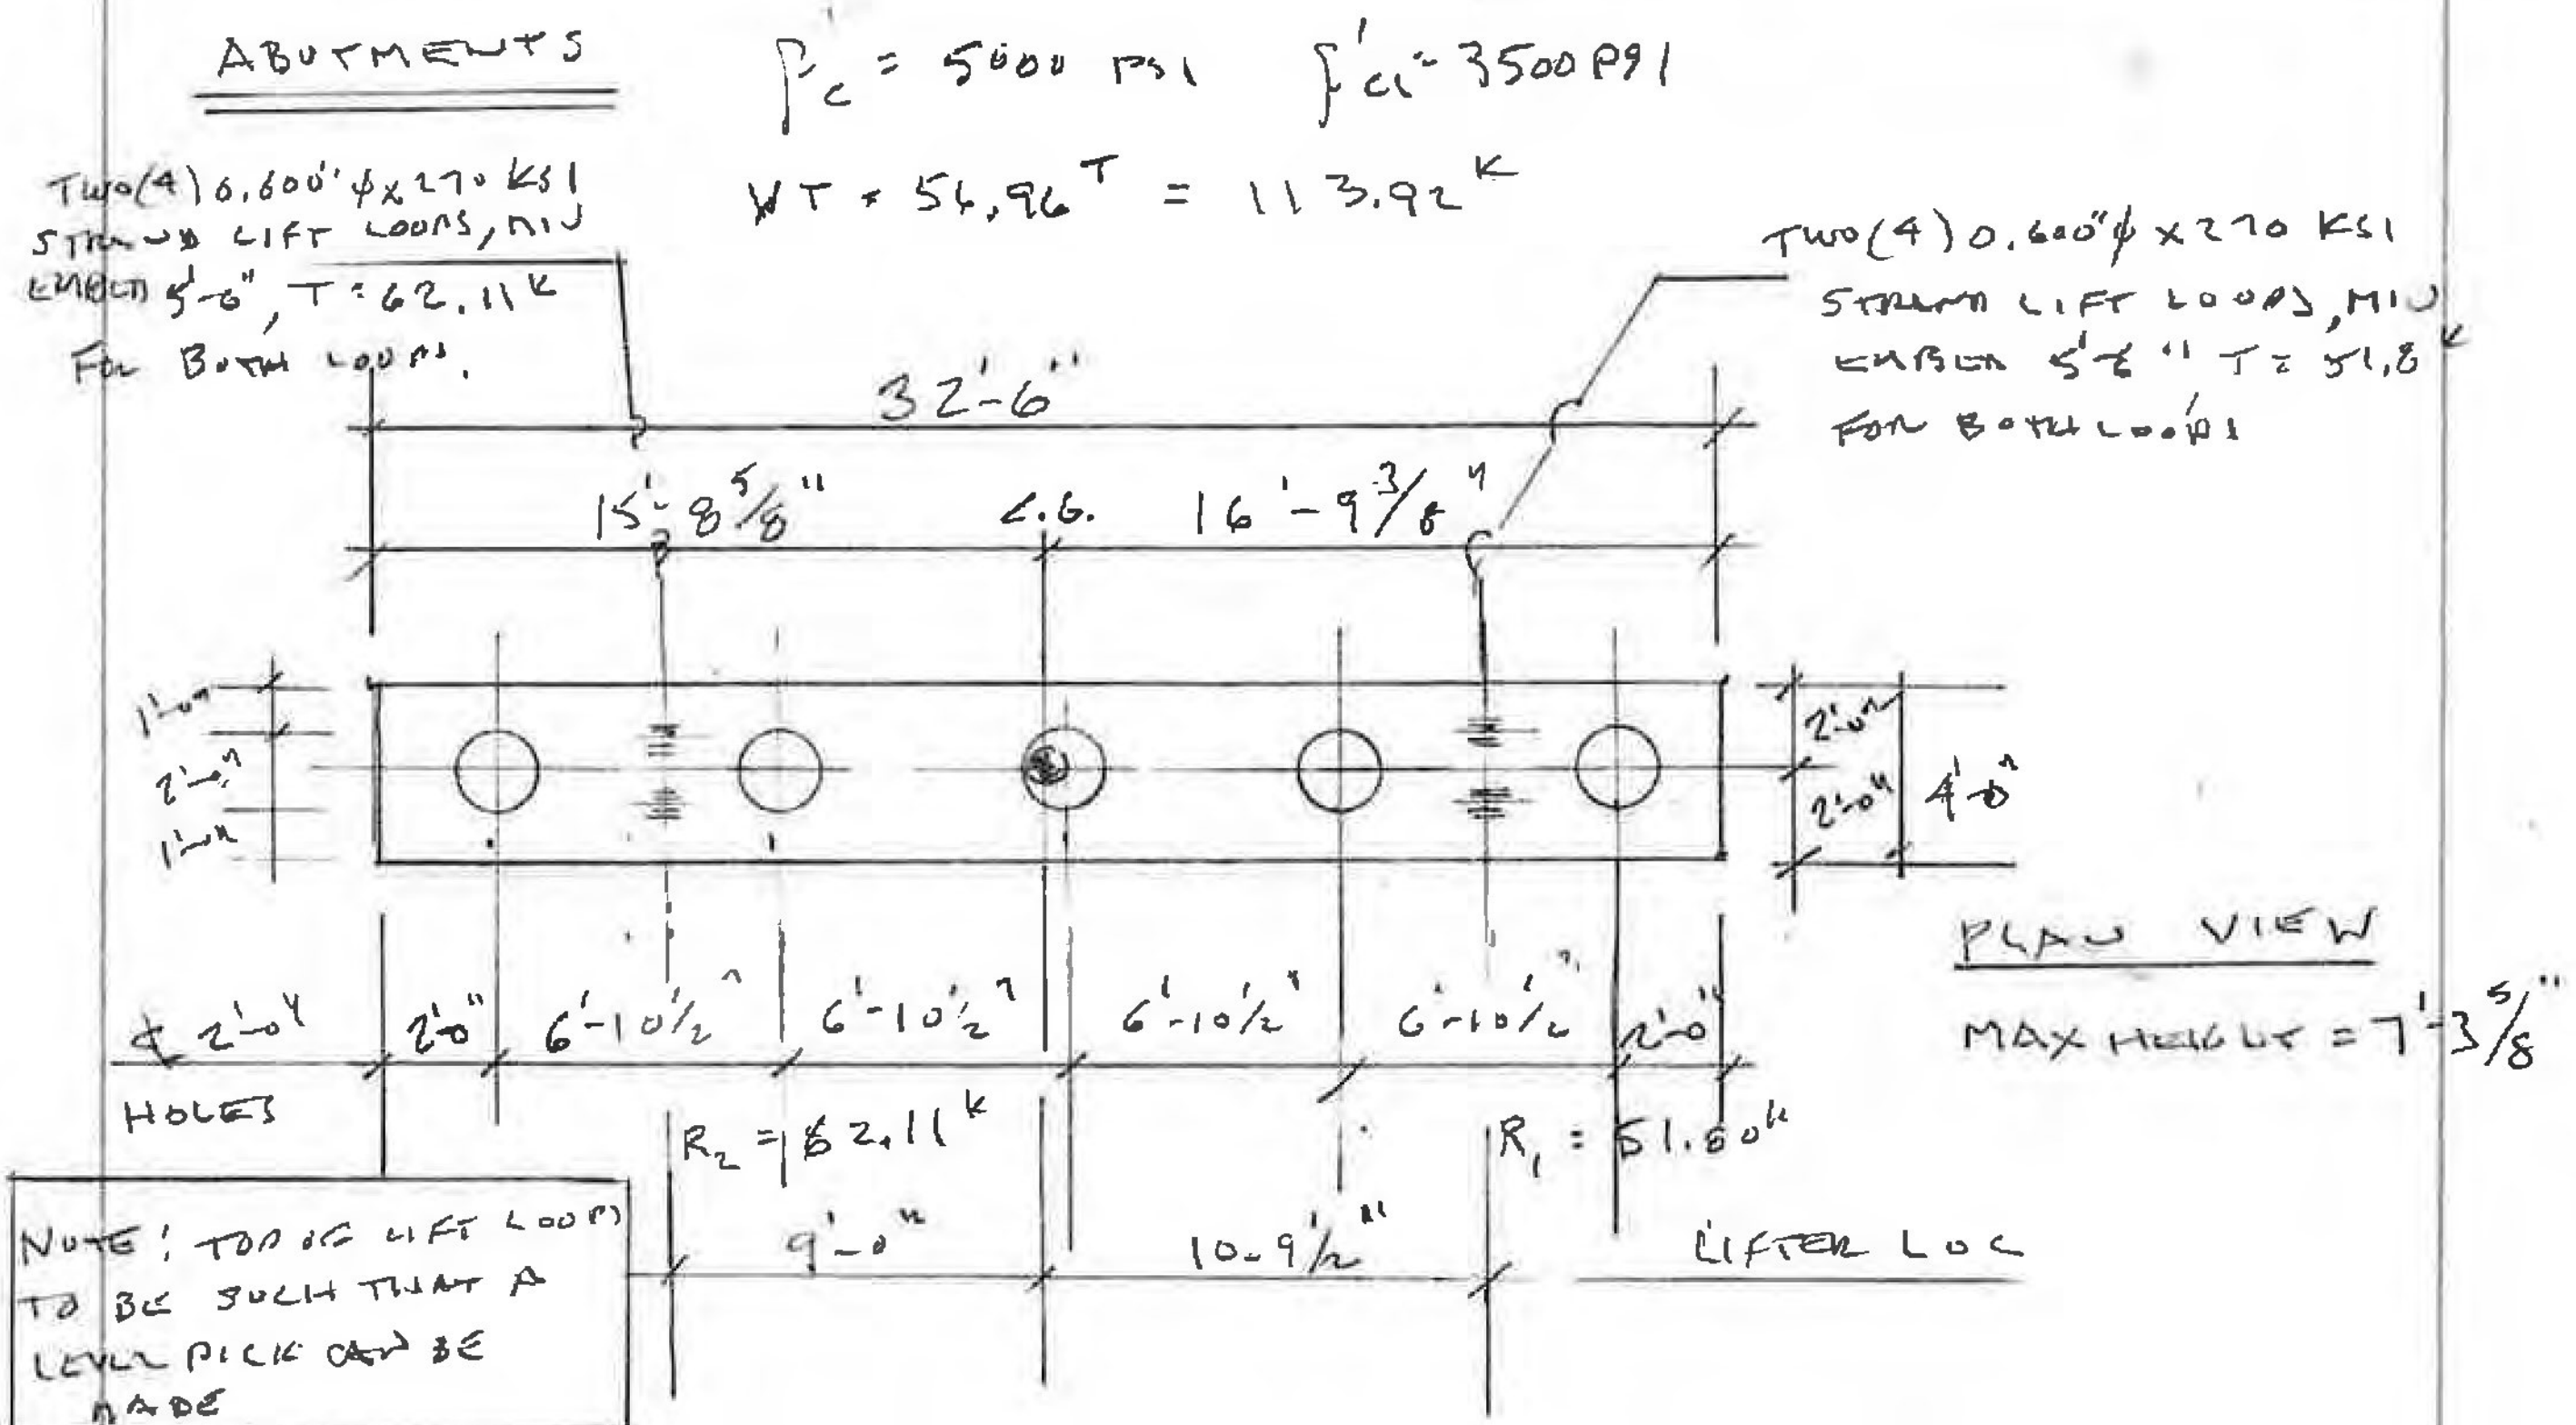 ABUTMENTS
f'c = 5000 PSI f'ci = 3500 PSI
WT = 56.96 T = 113.92 K
TWO(4) 0.600"φ x 270 KSI
STRAND LIFT LOOPS, MIN
EMBED 5'-6", T = 62.11 K
FOR BOTH LOOPS.
TWO(4) 0.600"φ x 270 KSI
STRAND LIFT LOOPS, MIN
EMBED 5'-6" T = 51.8 K
FOR BOTH LOOPS
32'-6"
15'-8 5/8" C.G. 16'-9 3/8"
1'-0"
2'-0"
1'-0"
2'-0"
2'-0"
4'-0"
PLAN VIEW
MAX HEIGHT = 7'-3 5/8"
℄ 2'-0" 2'-0" 6'-10 1/2" 6'-10 1/2" 6'-10 1/2" 6'-10 1/2" 2'-0"
HOLES
R2 = 62.11 K R1 = 51.80 K
9'-0" 10-9 1/2" LIFTER LOC
NOTE: TOP OF LIFT LOOPS
TO BE SUCH THAT A
LEVEL PICK CAN BE
MADE